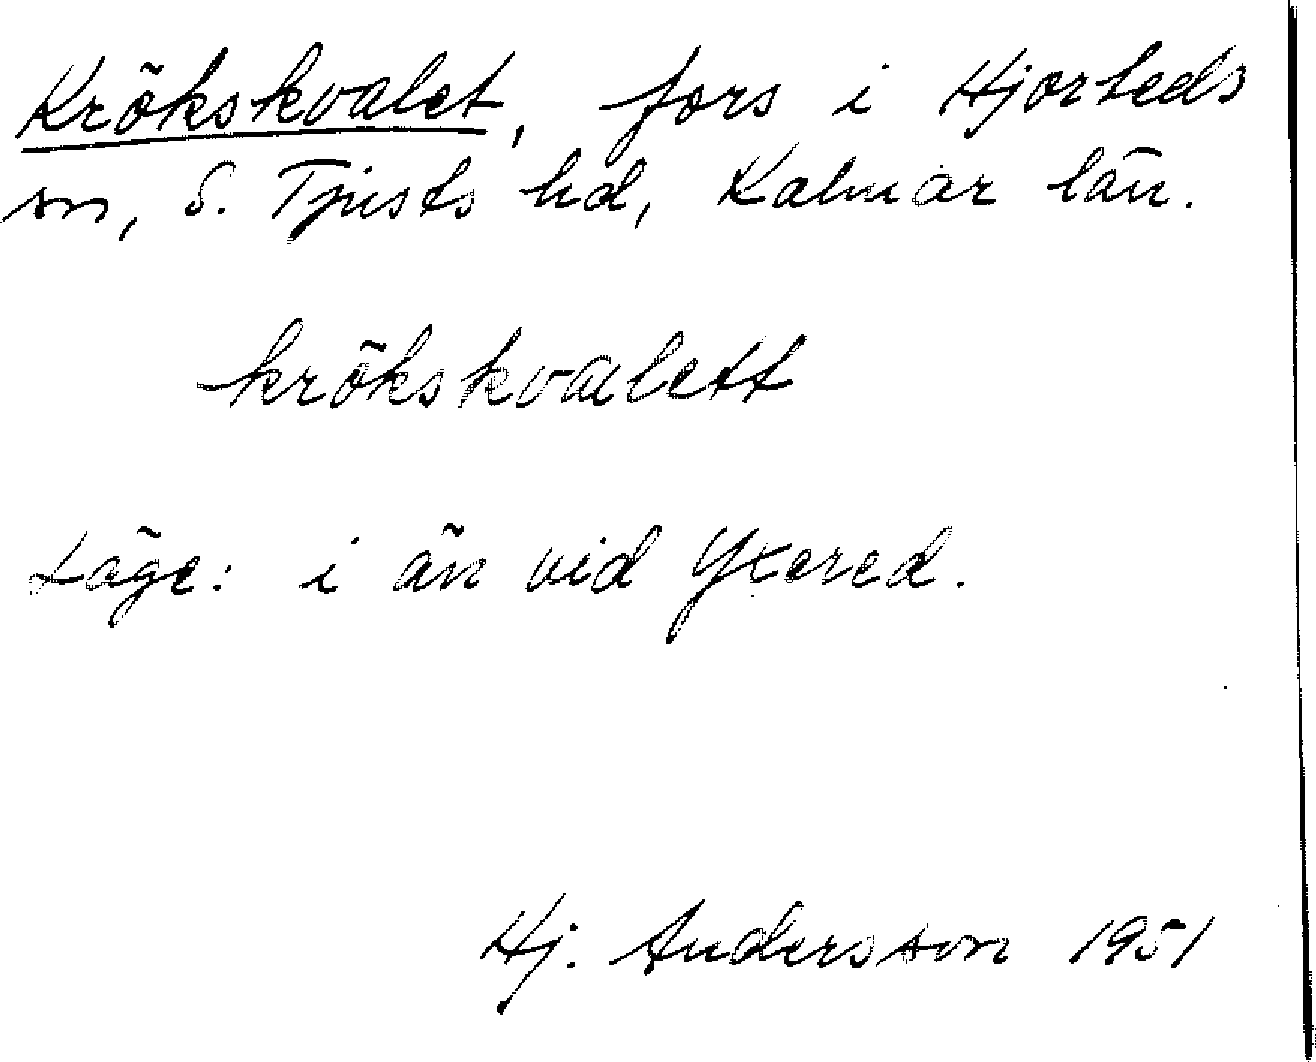 Krökskvalet, fors i Hjorteds
sn, S. Tjusts hd, Kalmar län.
krökskvalett
Läge: i ån vid Yxered.
Hj. Andersson 1951